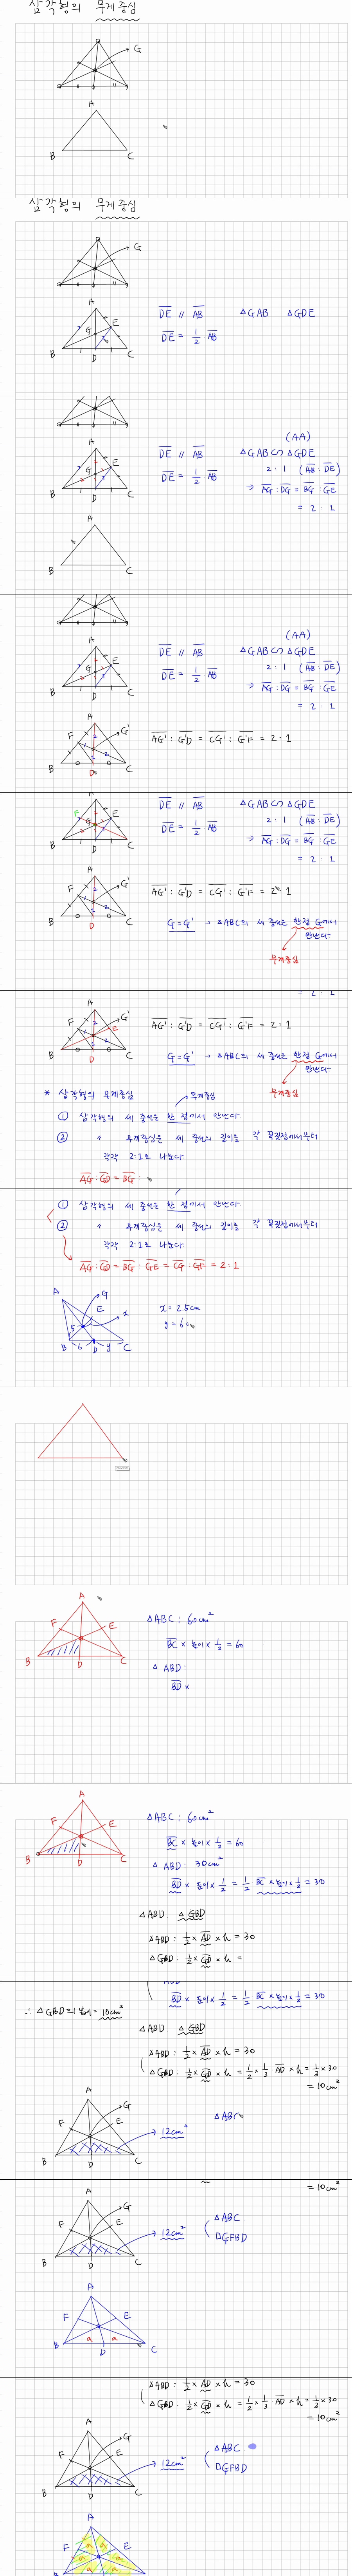 삼각형의 무게중심
G
A
B C
삼각형의 무게중심
G
A
G E
B D C
DE // AB △GAB △GDE
DE = 1/2 AB
(AA)
A DE // AB △GAB ∽ △GDE
G E DE = 1/2 AB 2 : 1 (AB : DE)
B D C → AG : DG = BG : GE
= 2 : 1
A
B C
(AA)
A DE // AB △GAB ∽ △GDE
G E DE = 1/2 AB 2 : 1 (AB : DE)
B D C → AG : DG = BG : GE
= 2 : 1
A
F G'
B D C
AG' : G'D = CG' : G'F = 2 : 1
F G E DE // AB △GAB ∽ △GDE
DE = 1/2 AB 2 : 1 (AB : DE)
B D C → AG : DG = BG : GE
= 2 : 1
A
F G' AG' : G'D = CG' : G'F = 2 : 1
B D C G = G' → △ABC의 세 중선은 한점 G에서
만난다
무게중심
A
F G' E AG' : G'D = CG' : G'F = 2 : 1
B D C G = G' → △ABC의 세 중선은 한점 G에서
만난다
무게중심
* 삼각형의 무게중심
무게중심
① 삼각형의 세 중선은 한 점에서 만난다
② 〃 무게중심은 세 중선의 길이를 각 꼭짓점에서부터
각각 2:1로 나눈다
AG : GD = BG :
① 삼각형의 세 중선은 한 점에서 만난다
② 〃 무게중심은 세 중선의 길이를 각 꼭짓점에서부터
각각 2:1로 나눈다
AG : GD = BG : GE = CG : GF = 2 : 1
A G
E x
5
B 6 D y C
x = 2.5cm
y = 6c
A
F E
B D C
△ABC : 60cm²
BC × 높이 × 1/2 = 60
△ABD :
BD ×
A
F E
B D C
△ABC : 60cm²
BC × 높이 × 1/2 = 60
△ABD : 30cm²
BD × 높이 × 1/2 = 1/2 BC × 높이 × 1/2 = 30
△ABD △GBD
△ABD : 1/2 × AD × h = 30
△GBD : 1/2 × GD × h =
BD × 높이 × 1/2 = 1/2 BC × 높이 × 1/2 = 30
∴ △GBD의 넓이 = 10cm²
△ABD △GBD
△ABD : 1/2 × AD × h = 30
△GBD : 1/2 × GD × h = 1/2 × 1/3 AD × h = 1/3 × 30
= 10cm²
A
F G E
B D C
12cm²
△ABC
= 10cm²
A
F G E
B D C
12cm²
△ABC
□GFBD
A
F E
B a a C
D
△ABD : 1/2 × AD × h = 30
△GBD : 1/2 × GD × h = 1/2 × 1/3 AD × h = 1/3 × 30
= 10cm²
A
F G E
B D C
12cm²
△ABC
□GFBD
A
F a a E
a a
a a